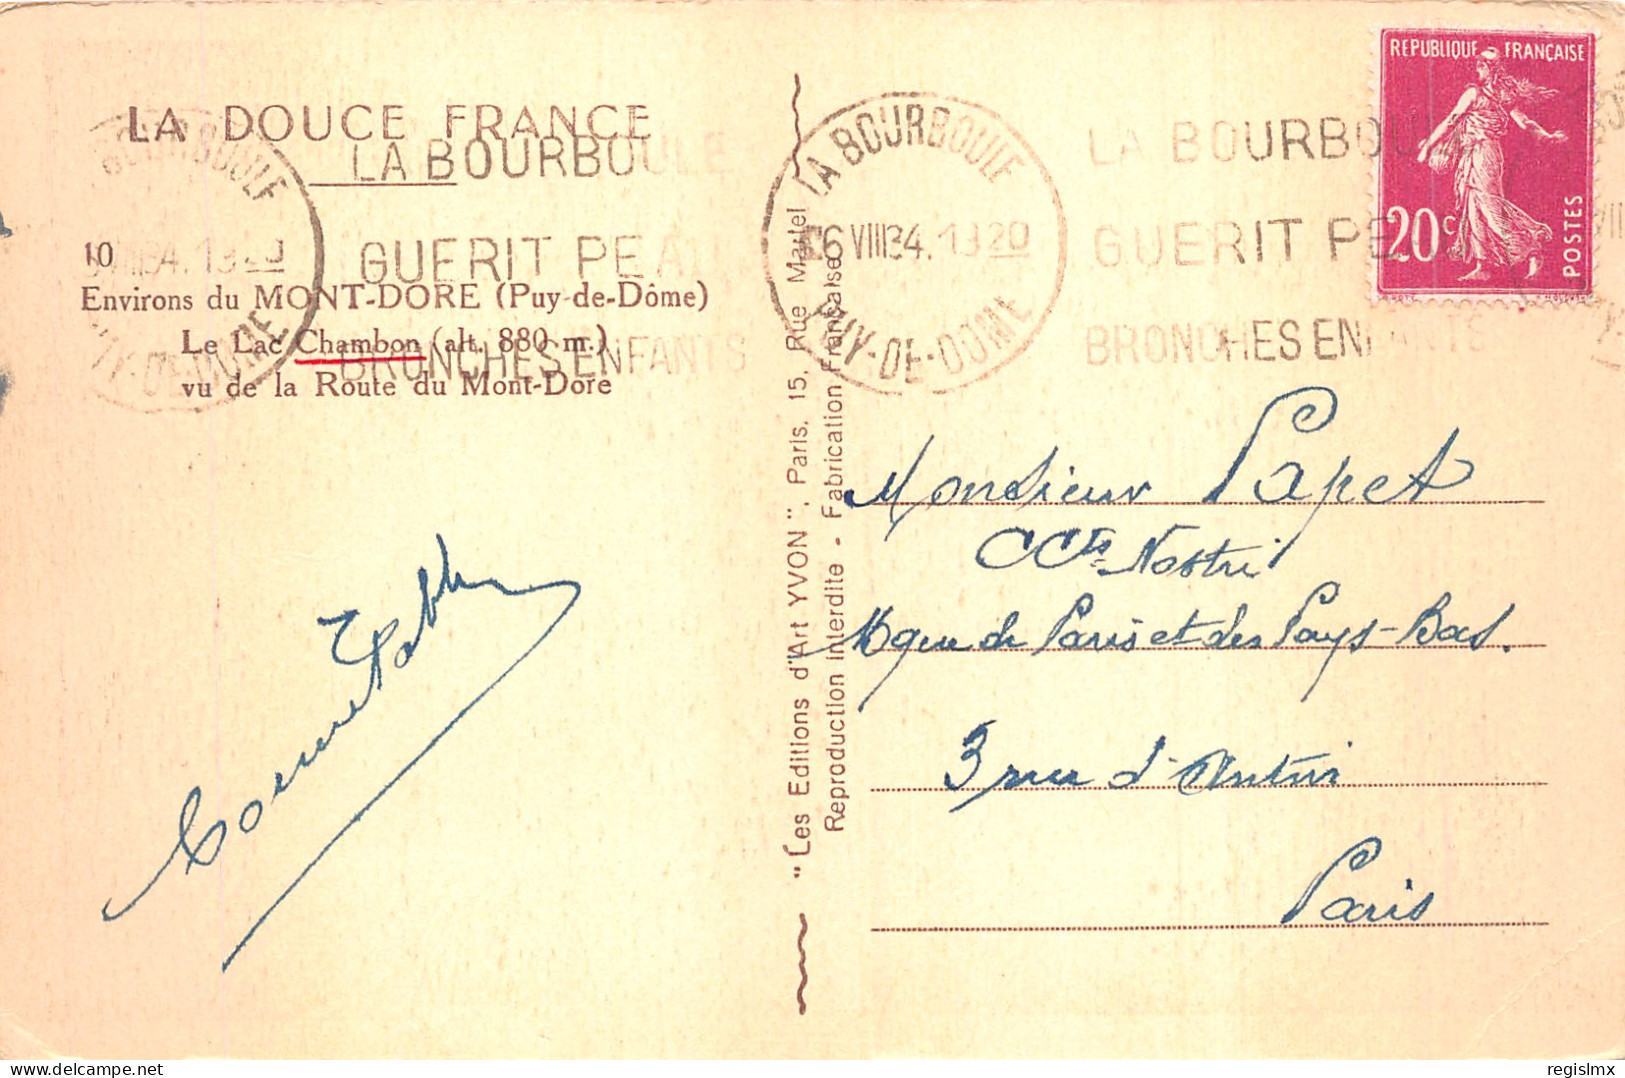 LA DOUCE FRANCE
10
Environs du MONT-DORE (Puy-de-Dôme)
Le Lac Chambon (alt. 880 m.)
vu de la Route du Mont-Dore
LA BOURBOULE
GUERIT PEAU
BRONCHES ENFANTS
"Les Editions d'Art YVON", Paris, 15, Rue Martel
Reproduction interdite - Fabrication Française
LA BOURBOULE
6 VIII 34. 1320
PUY-DE-DOME
LA BOURBOULE
GUERIT PEAU
BRONCHES ENFANTS
REPUBLIQUE FRANÇAISE
20c
POSTES
Monsieur Papet
CCts Nostri
Bque de Paris et des Pays-Bas.
3 rue d'Antin
Paris
delcampe.net
regislmx